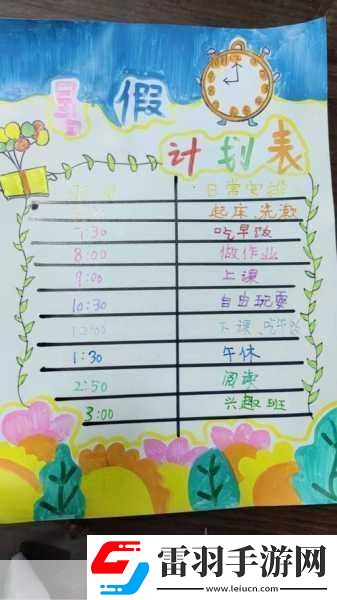 暑假
计划表
日常安排
起床、洗漱
7:30 吃早饭
8:00 做作业
9:00 上课
10:30 自由玩耍
12:00 下课、吃午饭
1:30 午休
2:50 阅读
3:00 兴趣班
雷羽手游网
www.leiucn.com